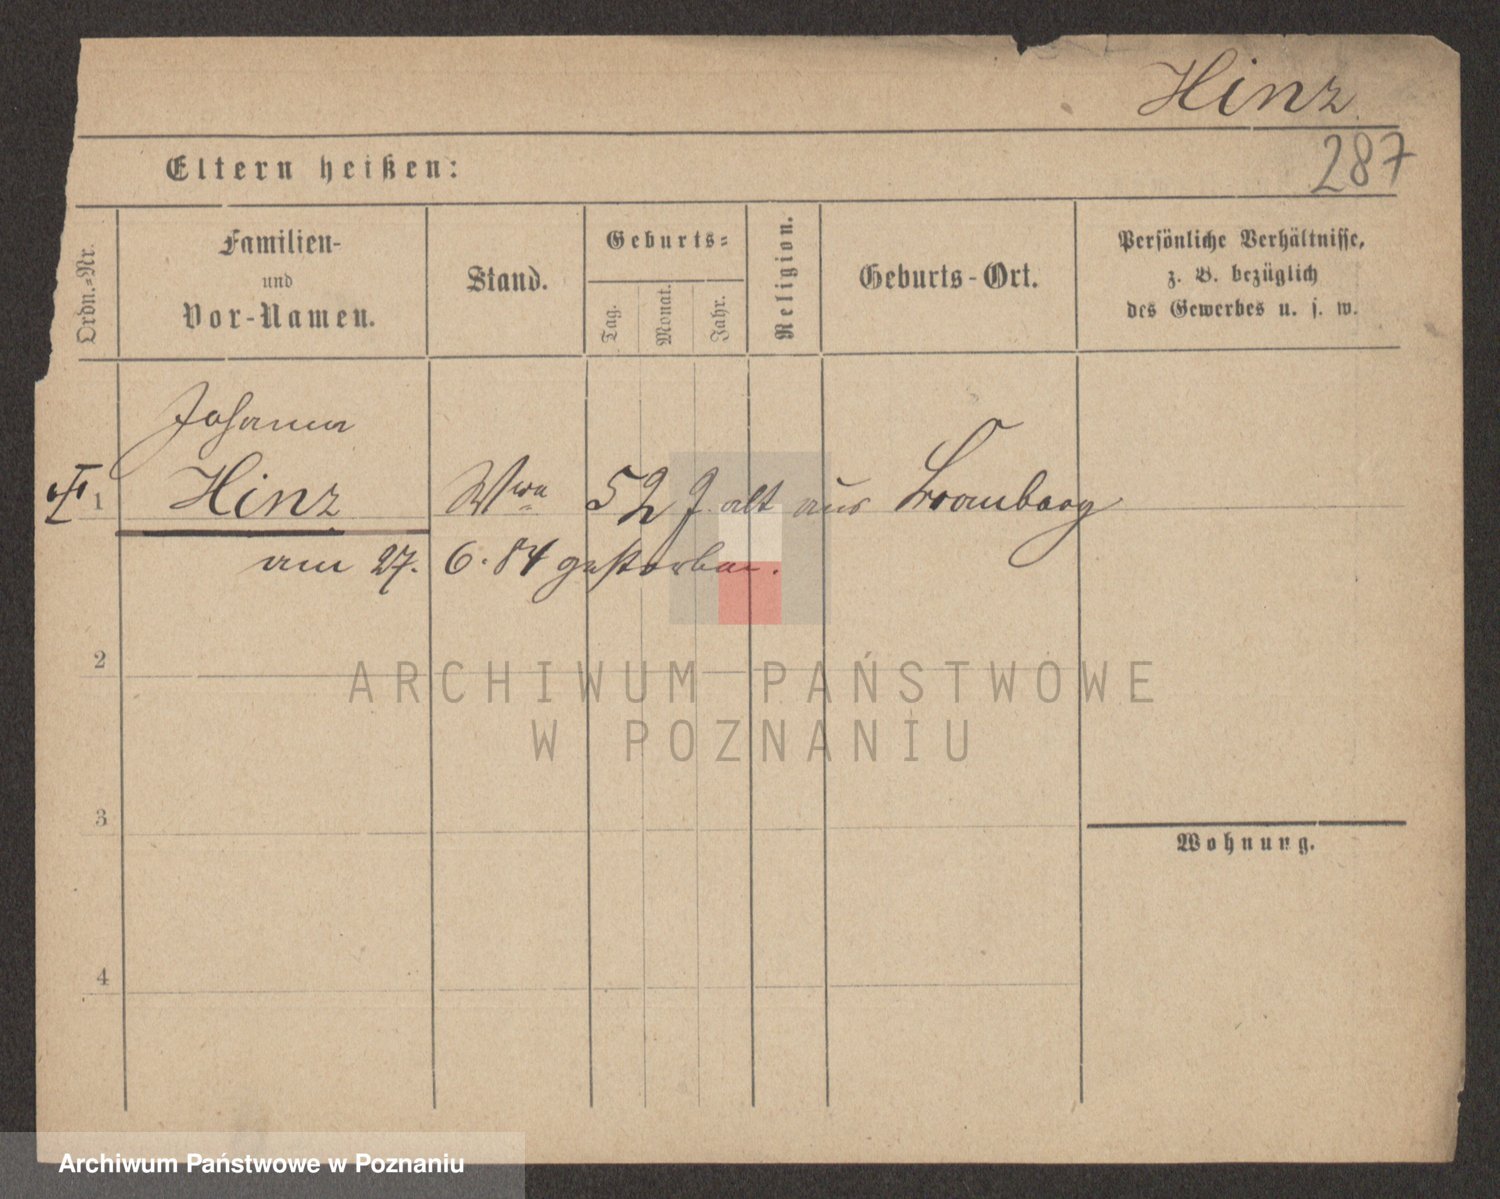 Hinz
287
Eltern heißen:
Ordn.-Nr.
Familien-
und
Vor-Namen.
Stand.
Geburts-
Tag.
Monat.
Jahr.
Religion.
Geburts-Ort.
Persönliche Verhältnisse,
z. B. bezüglich
des Gewerbes u. s. w.
Johanna
1 Hinz Wwe 52 J. alt aus Bromberg
am 27. 6. 84 gestorben.
2
ARCHIWUM PAŃSTWOWE
W POZNANIU
3
Wohnung.
4
Archiwum Państwowe w Poznaniu